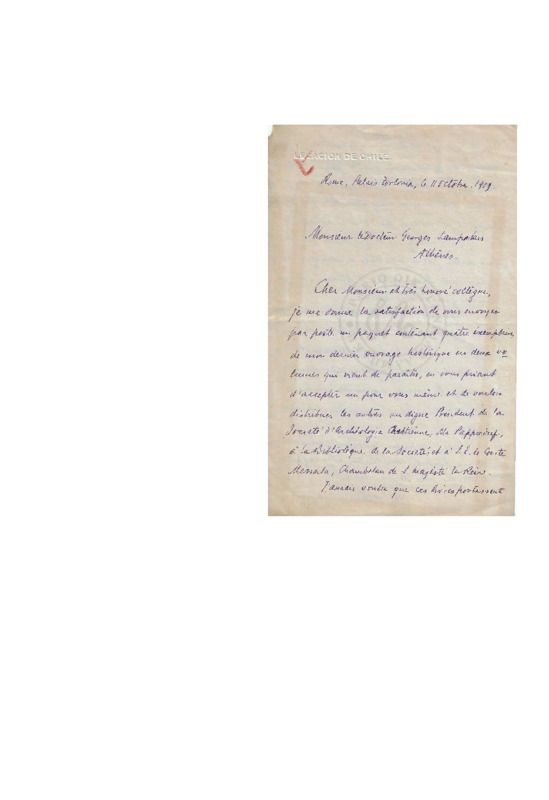 LEGACION DE CHILE
Rome, Palais Torlonia, le 11 Octobre 1909.
Monsieur le Docteur Georges Lampakis
Athènes.
Cher Monsieur et très honoré collègue,
je me donne la satisfaction de vous envoyer
par poste un paquet contenant quatre exemplaires
de mon dernier ouvrage historique en deux vo
lumes qui vient de paraître, en vous priant
d'accepter un pour vous même et de vouloir
distribuer les autres au digne President de la
Société d'Archéologie Chrétienne,
à la Bibliotèque de la Société et à S.E. le Comte
Messala, Chambelan de S. Majesté la Reine.
J'aurais voulu que ces livres portassent